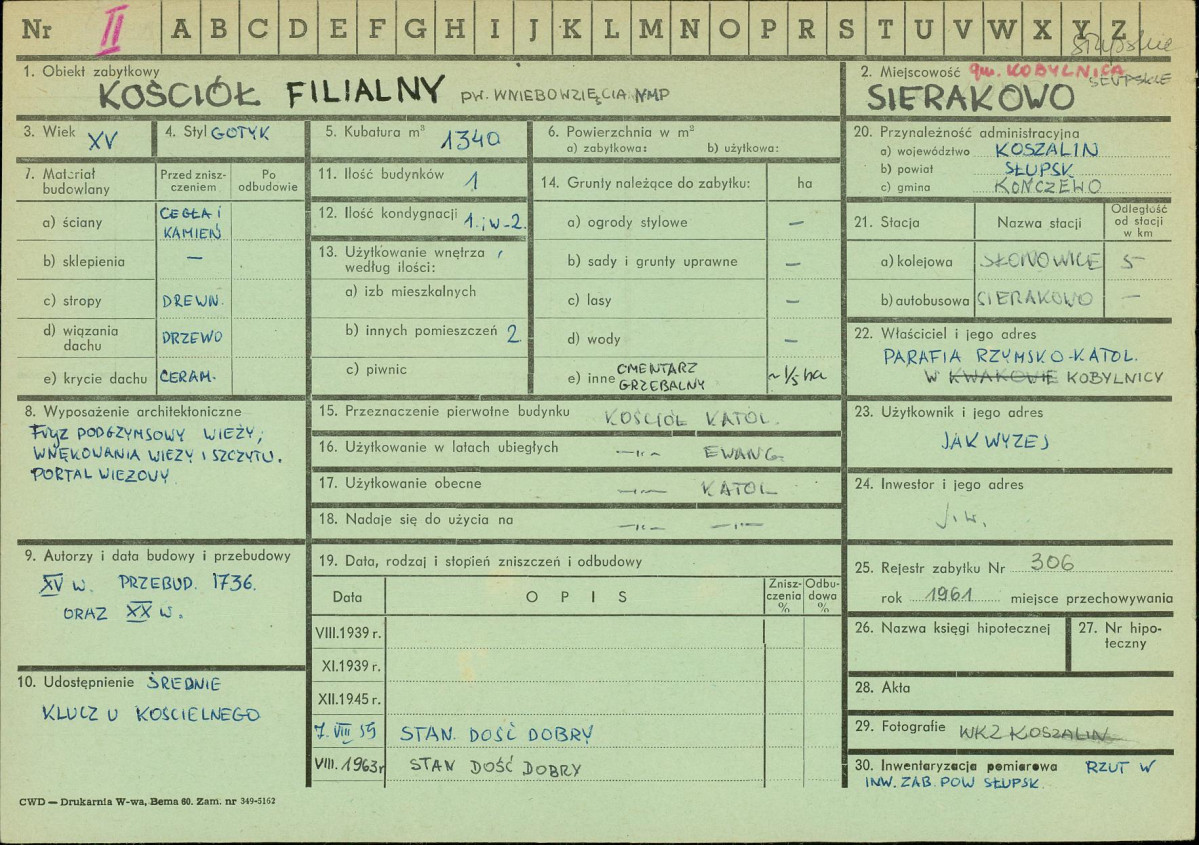 Nr II A B C D E F G H I J K L M N O P R S T U V W X Y Z
Słupskie
1. Obiekt zabytkowy
KOŚCIÓŁ FILIALNY PW. WNIEBOWZIĘCIA NMP
2. Miejscowość gm. KOBYLNICA
SŁUPSKIE
SIERAKOWO
3. Wiek XV
4. Styl GOTYK
5. Kubatura m³ 1340
6. Powierzchnia w m²
a) zabytkowa: b) użytkowa:
7. Materiał budowlany
Przed znisz-
czeniem
Po
odbudowie
a) ściany CEGŁA I
KAMIEŃ
b) sklepienia —
c) stropy DREWN.
d) wiązania
dachu DRZEWO
e) krycie dachu CERAM.
8. Wyposażenie architektoniczne
FRYZ PODGZYMSOWY WIEŻY,
WNĘKOWANIA WIEŻY I SZCZYTU.
PORTAL WIEŻOWY.
9. Autorzy i data budowy i przebudowy
XV W. PRZEBUD. 1736.
ORAZ XX W.
10. Udostępnienie ŚREDNIE
KLUCZ U KOŚCIELNEGO
11. Ilość budynków 1
12. Ilość kondygnacji 1. i W-2.
13. Użytkowanie wnętrza
według ilości:
a) izb mieszkalnych
b) innych pomieszczeń 2
c) piwnic
14. Grunty należące do zabytku: ha
a) ogrody stylowe —
b) sady i grunty uprawne —
c) lasy —
d) wody —
e) inne CMENTARZ
GRZEBALNY ~ 1/5 ha
15. Przeznaczenie pierwotne budynku KOŚCIÓŁ KATOL.
16. Użytkowanie w latach ubiegłych —"— EWANG.
17. Użytkowanie obecne —"— KATOL
18. Nadaje się do użycia na —"— —"—
19. Data, rodzaj i stopień zniszczeń i odbudowy
Data
O P I S
Znisz-
czenia
%
Odbu-
dowa
%
VIII.1939 r.
XI.1939 r.
XII.1945 r.
7. VIII 59 STAN. DOŚĆ DOBRY
VIII. 1963r STAN DOŚĆ DOBRY
20. Przynależność administracyjna
a) województwo KOSZALIN
b) powiat SŁUPSK
c) gmina KOŃCZEWO
21. Stacja
Nazwa stacji
Odległość
od stacji
w km
a) kolejowa SŁONOWICE 5
b) autobusowa SIERAKOWO —
22. Właściciel i jego adres
PARAFIA RZYMSKO-KATOL.
W KWAKOWIE KOBYLNICY
23. Użytkownik i jego adres
JAK WYŻEJ
24. Inwestor i jego adres
j.w.
25. Rejestr zabytku Nr 306
rok 1961 miejsce przechowywania
26. Nazwa księgi hipotecznej
27. Nr hipo-
teczny
28. Akta
29. Fotografie WKZ KOSZALIN
30. Inwentaryzacja pomiarowa RZUT W
INW. ZAB. POW SŁUPSK.
CWD — Drukarnia W-wa, Bema 60. Zam. nr 349-5162